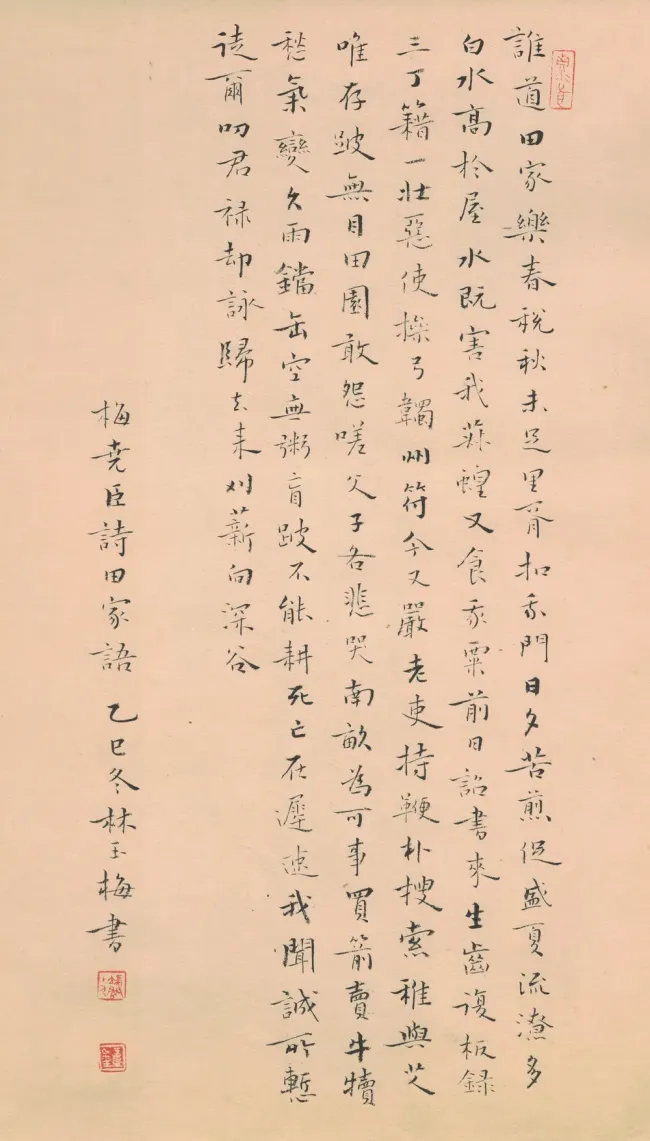 誰道田家樂春稅秋未足里胥扣我門日夕苦煎促盛夏流潦多
白水高於屋水既害我菽蝗又食我粟前日詔書來生齒復板錄
三丁籍一壯惡使操弓韣州符今又嚴老吏持鞭朴搜索稚與艾
唯存跛無目田園敢怨嗟父子各悲哭南畝為可事買箭賣牛犢
愁氣變久雨鐺缶空無粥盲跛不能耕死亡在遲速我聞誠所慙
徒爾叨君祿却詠歸去来刈薪向深谷
梅尧臣詩田家語 乙巳冬林玉梅書